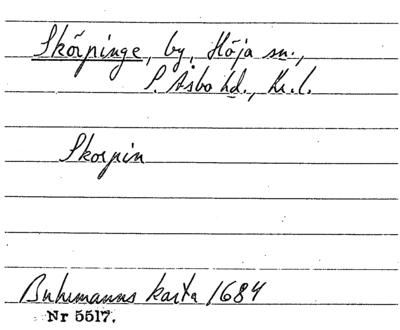 Skörpinge, by, Höja sn.,
S. Åsbo hd., Kr.l.
Skorpin
Buhrmanns karta 1684
Nr 5517.